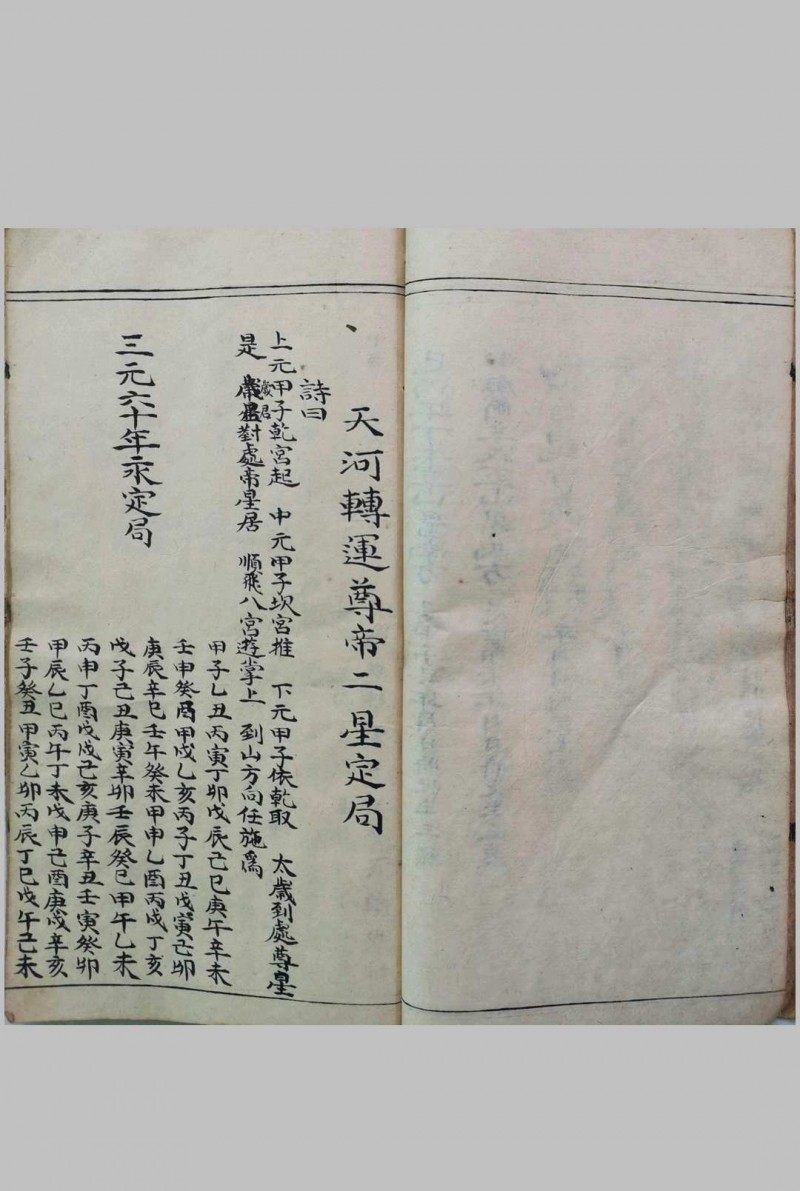 天河轉運尊帝二星定局
詩曰
上元甲子乾宮起　中元甲子坎宮推　下元甲子依乾取　太歲到處尊星
是　對處帝星居　順飛八宮遊掌上　到山方向任施為
三元六十年永定局
甲子乙丑丙寅丁卯戊辰己巳庚午辛未
壬申癸酉甲戌乙亥丙子丁丑戊寅己卯
庚辰辛巳壬午癸未甲申乙酉丙戌丁亥
戊子己丑庚寅辛卯壬辰癸巳甲午乙未
丙申丁酉戊戌己亥庚子辛丑壬寅癸卯
甲辰乙巳丙午丁未戊申己酉庚戌辛亥
壬子癸丑甲寅乙卯丙辰丁巳戊午己未